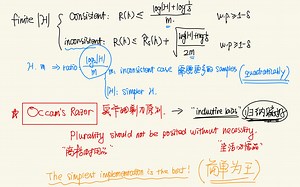 finite |H| { Consistent: R(h) ≤ (log|H| + log 1/δ) / m w.p. ≥ 1-δ
inconsistent: R(h) ≤ R̂s(h) + √((log|H| + log 2/δ) / 2m) w.p. ≥ 1-δ
H, m ⇒ ratio log|H| / m m, inconsistent case 需要更多的 samples (quadratically)
|H|: simpler H.
★ Occam's Razor 奥卡姆剃刀原则. → "inductive bias" 归纳偏好
Plurality should not be posited without necessity.
The simplest implementation is the best! (简单为王)